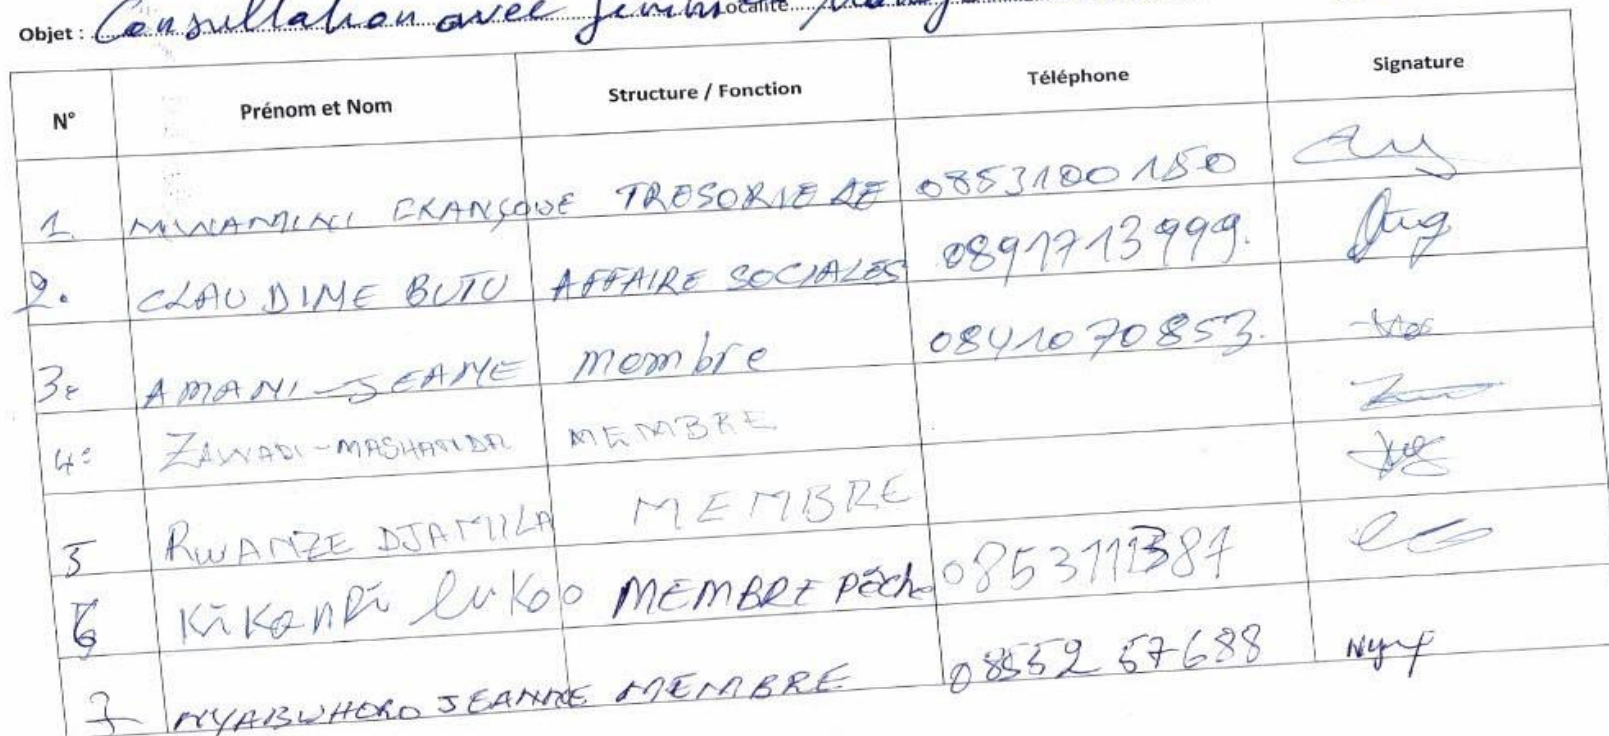 Objet : Consultation avec femmes Localité
N° Prénom et Nom Structure / Fonction Téléphone Signature
1. MWAMINI FRANÇOISE TRESORIE RE 0853100150
2. CLAUDINE BUTU AFFAIRE SOCIALES 0891713999.
3. AMANI-JEANE membre 0841070853.
4. ZAWADI-MASHANDA MEMBRE
5 RWANZE DJAMILA MEMBRE
6 KiKANDi lukoo MEMBRE Pêche
7 NYABWHORO JEANNE MEMBRE 0855257688